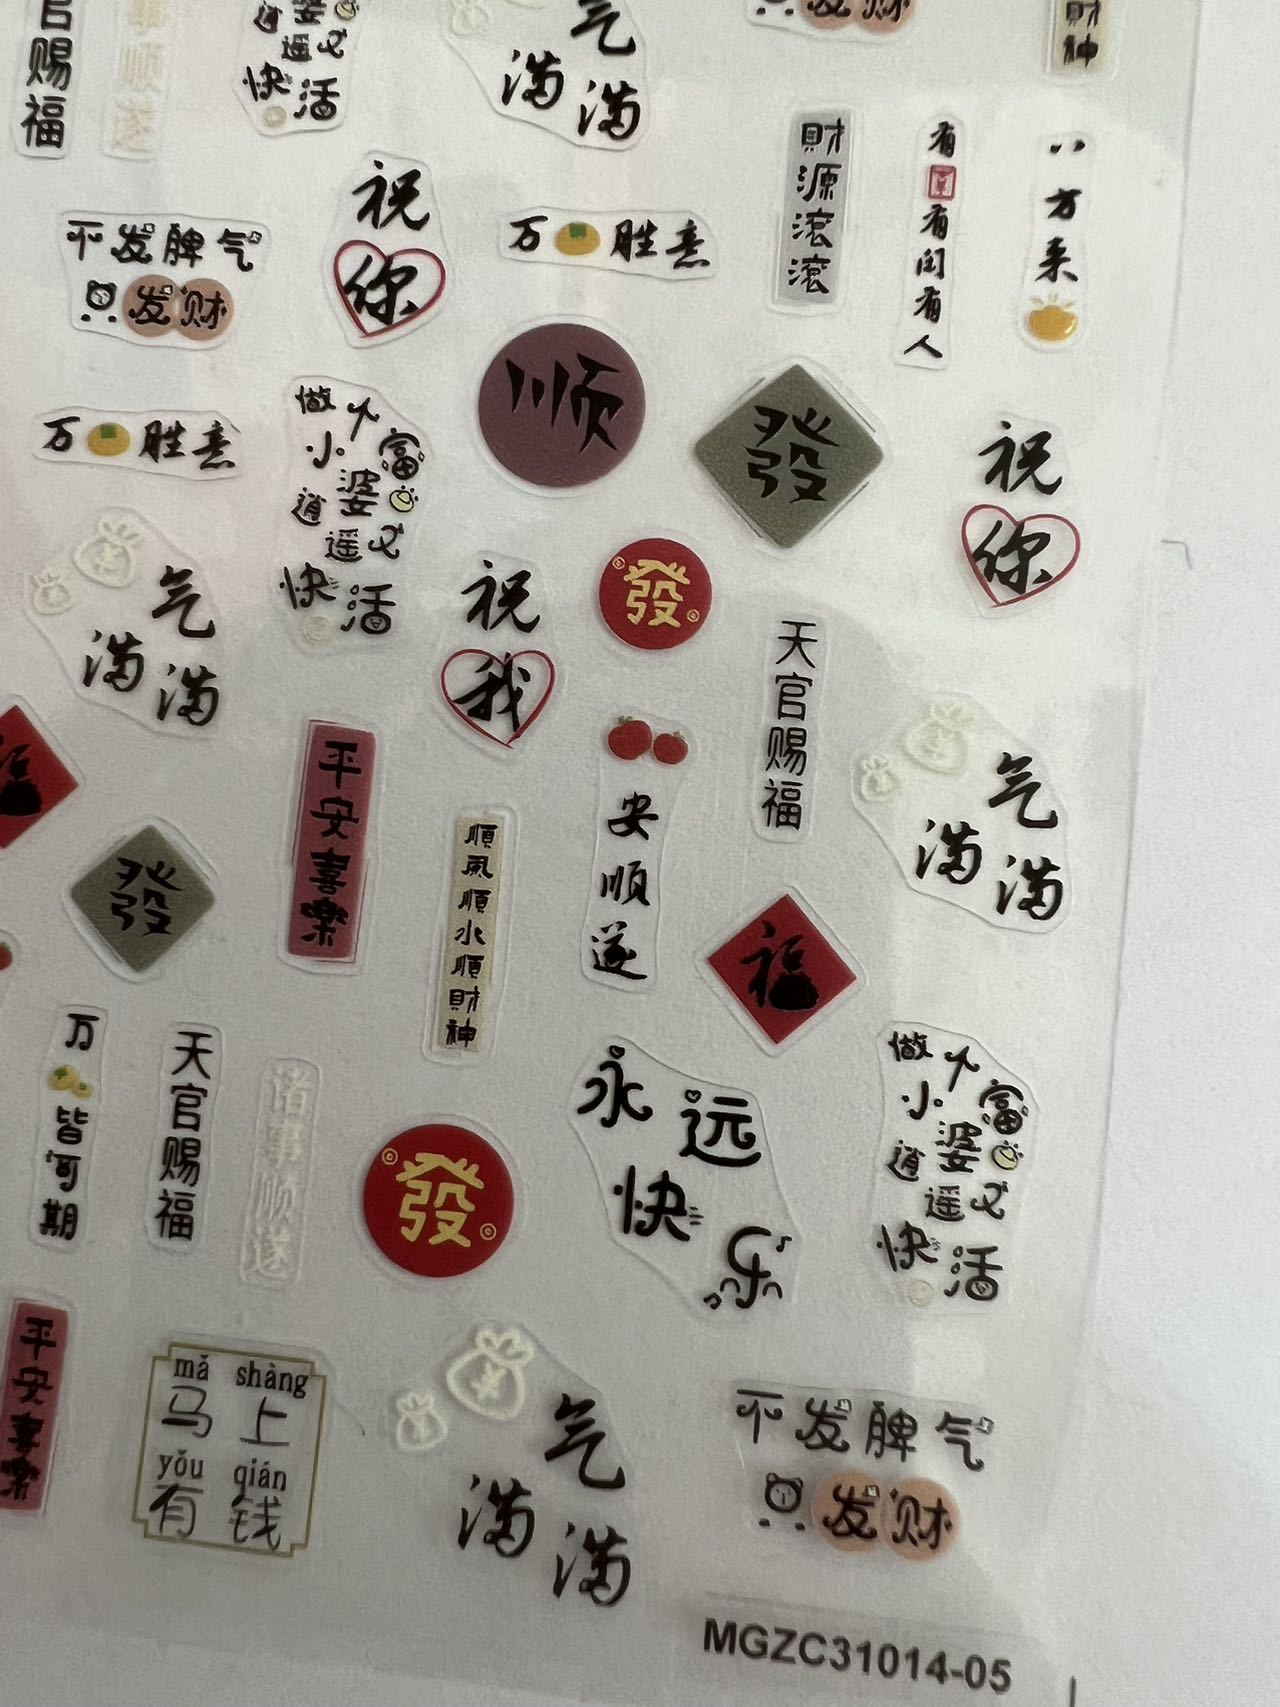 官赐福
顺遂
婆
逍遥
快活
气
满满
发财
财神
祝
你
不发脾气
只发财
万胜意
財源滾滾
有有闰有人
八方来
顺
發
万胜意
做个
小富
婆
逍遥
快活
祝
你
气
满满
祝
我
發
天官赐福
气
满满
福
平安喜樂
順風順水順財神
安顺遂
福
發
万皆可期
天官赐福
诸事顺遂
發
永远
快乐
做个
小富
婆
逍遥
快活
平安喜樂
mǎ shàng
马上
yǒu qián
有钱
气
满满
不发脾气
只发财
MGZC31014-05